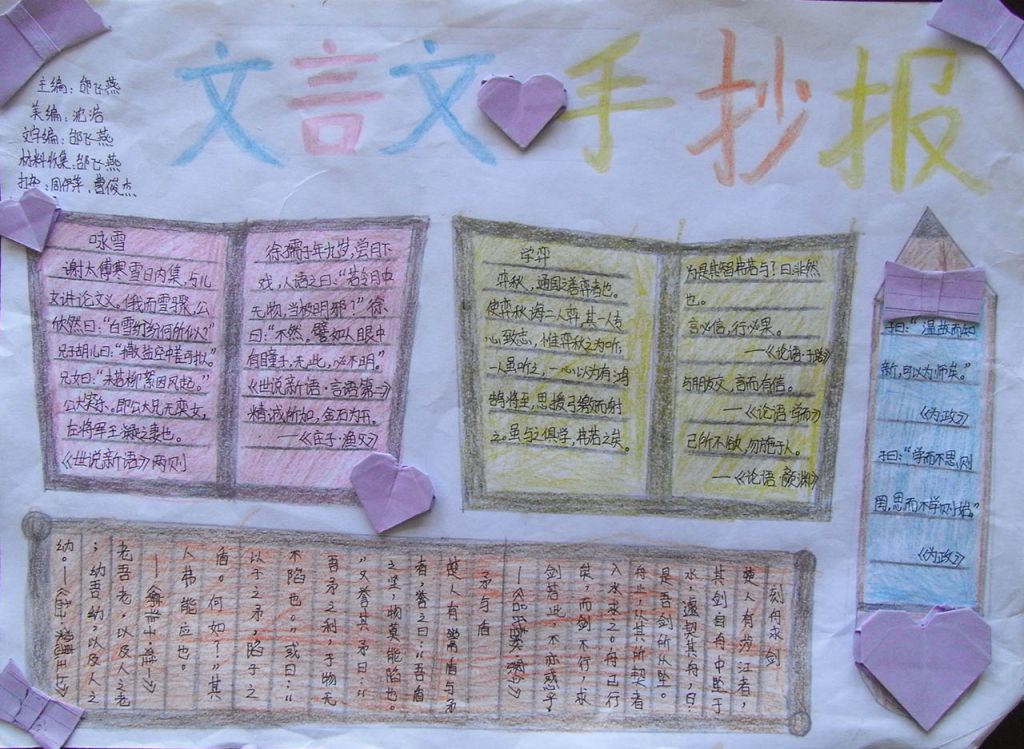 文言文手抄报
主编:邰飞燕
美编:沈浩
文字编:邰飞燕
材料收集:邰飞燕
打杂:周伊萍、曹俊杰
咏雪
谢太傅寒雪日内集,与儿
女讲论文义。俄而雪骤,公
欣然曰:“白雪纷纷何所似?”
兄子胡儿曰:“撒盐空中差可拟。”
兄女曰:“未若柳絮因风起。”
公大笑乐。即公大兄无奕女,
左将军王凝之妻也。
《世说新语》两则
徐孺子年九岁,尝月下
戏,人语之曰:“若令月中
无物,当极明邪?”徐
曰:“不然。譬如人眼中
有瞳子,无此,必不明”
《世说新语·言语第一》
精诚所加,金石为开。
——《庄子·渔父》
学弈
弈秋,通国之善弈者也。
使弈秋诲二人弈,其一人专
心致志,惟弈秋之为听,
一人虽听之,一心以为有鸿
鹄将至,思援弓缴而射
之。虽与之俱学,弗若之矣。
为是其智弗若与?曰:非然
也。
言必信,行必果。
——《论语·子路》
与朋友交,言而有信。
——《论语·学而》
己所不欲,勿施于人。
——《论语·颜渊》
子曰:“温故而知
新,可以为师矣。”
《为政》
子曰:“学而不思,则
罔,思而不学则殆。”
《为政》
刻舟求剑
楚人有涉江者,
其剑自舟中坠于
水,遽契其舟,曰:
是吾剑所从坠。
舟止,从其所契者
入水求之。舟已行
矣,而剑不行,求
剑若此,不亦惑乎
矛与盾
楚人有鬻盾与矛
者,誉之曰:“吾盾
之坚,物莫能陷也。
”又誉其矛曰:“
吾矛之利,于物无
不陷也。”或曰:“
以子之矛,陷子之
盾。何如?”其
人弗能应也。
老吾老,以及人之老
;幼吾幼,以及人之
幼。